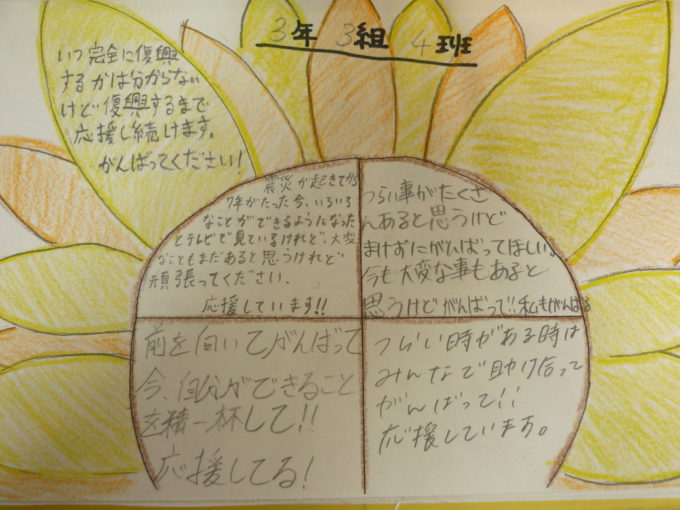 3年3組4班
いつ完全に復興
するかは分からない
けど復興するまで
応援し続けます。
がんばってください!
震災が起きてから
7年がたった今、いろいろ
なことができるようになった
とテレビで見ているけれど、大変
なこともまだあると思うけれど
頑張ってください.
応援しています!!
つらい事がたくさ
んあると思うけど
まけずにがんばってほしい。
今も大変な事もあると
思うけどがんばって!!私もがんばる
前を向いてがんばって
今、自分ができること
を精一杯して!!
応援してる!
つらい時がある時は
みんなで助け合って
がんばって!!
応援しています。